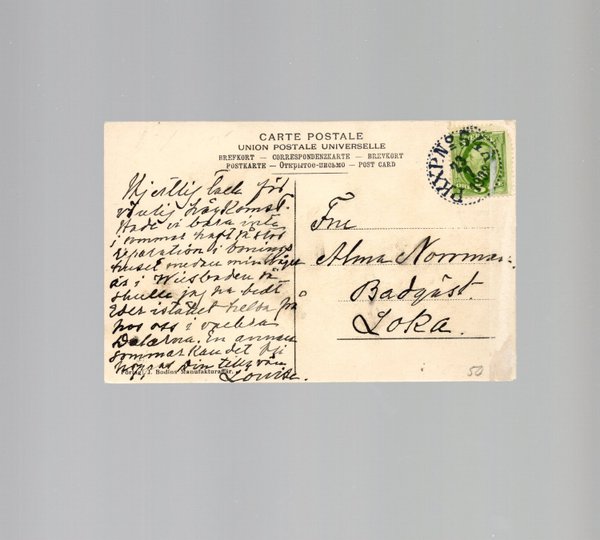 CARTE POSTALE
UNION POSTALE UNIVERSELLE
BREFKORT — CORRESPONDENZKARTE — BREVKORT
POSTKARTE — Открытое-письмо — POST CARD
PKXP Nº
Hjertlig Tack för
vänlig hågkomst.
Hade vi bara inte
i sommar haft så stor
reparation i bonings
huset medan min
är i Wiesbaden så
skulle jag ha bedt
Eder istället helsa på
hos oss i vackra
Dalarna, en annan
sommar kan det
Din tillg. vän
Louise.
Fru
Alma Norrman.
Badgäst.
Loka.
Förlag: J. Bodins Manufakturaffär.
50